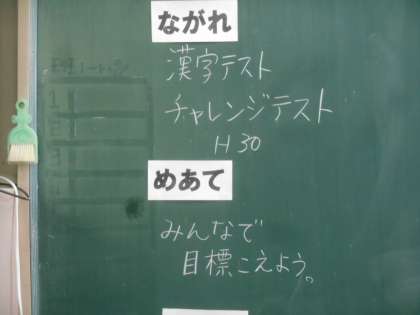 ながれ
漢字テスト
チャレンジテスト
H30
めあて
みんなで
目標こえよう。